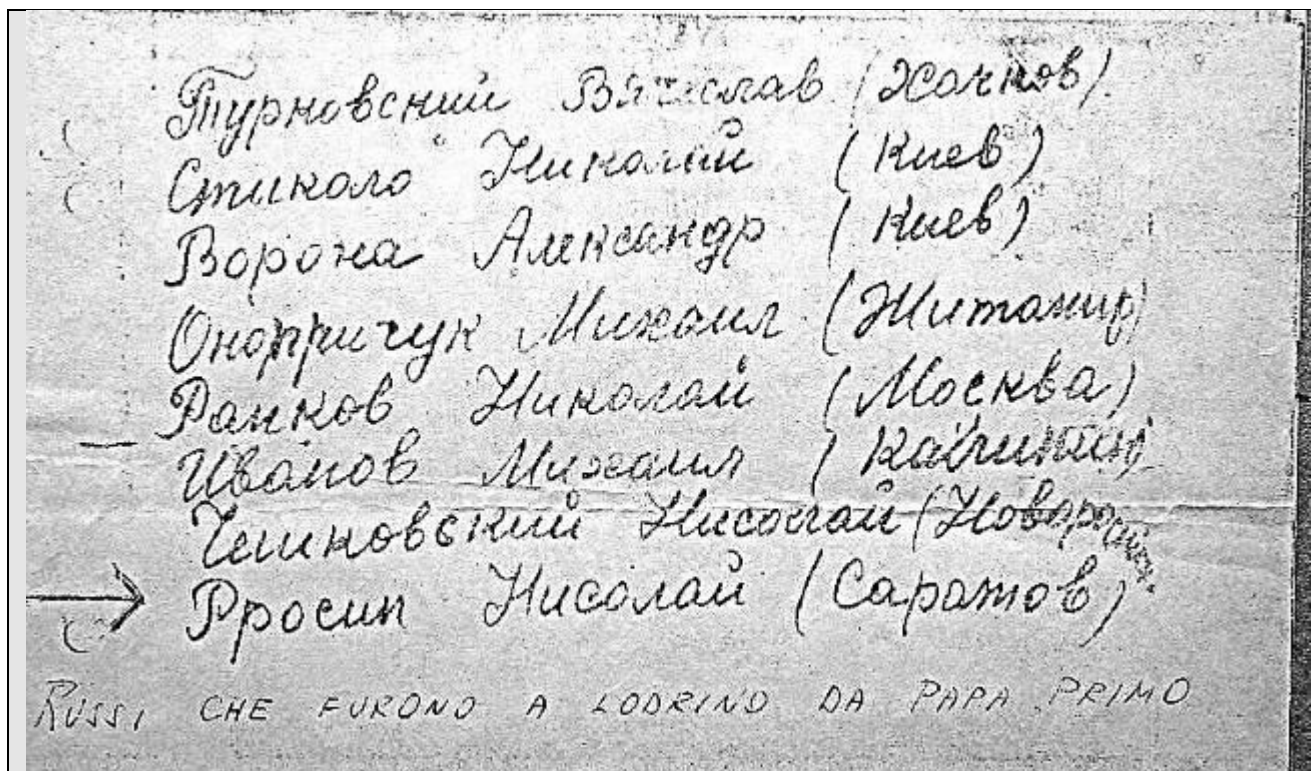 Турновский Вячеслав (Харков)
Стиколо Николай (Киев)
Ворона Александр (Киев)
Онопричук Михаил (Житомир)
Ранков Николай (Москва)
Иванов Михаил
Николай
Николай (Саратов)
RUSSI CHE FURONO A LODRINO DA PAPA PRIMO